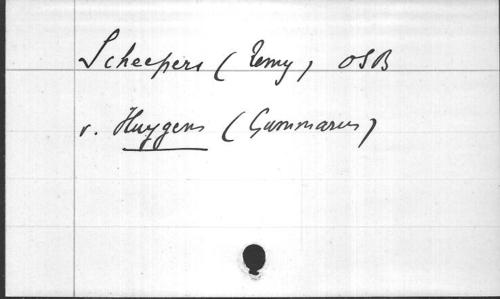 Scheepers (Remy) OSB
v. Huygens (Gummarus)